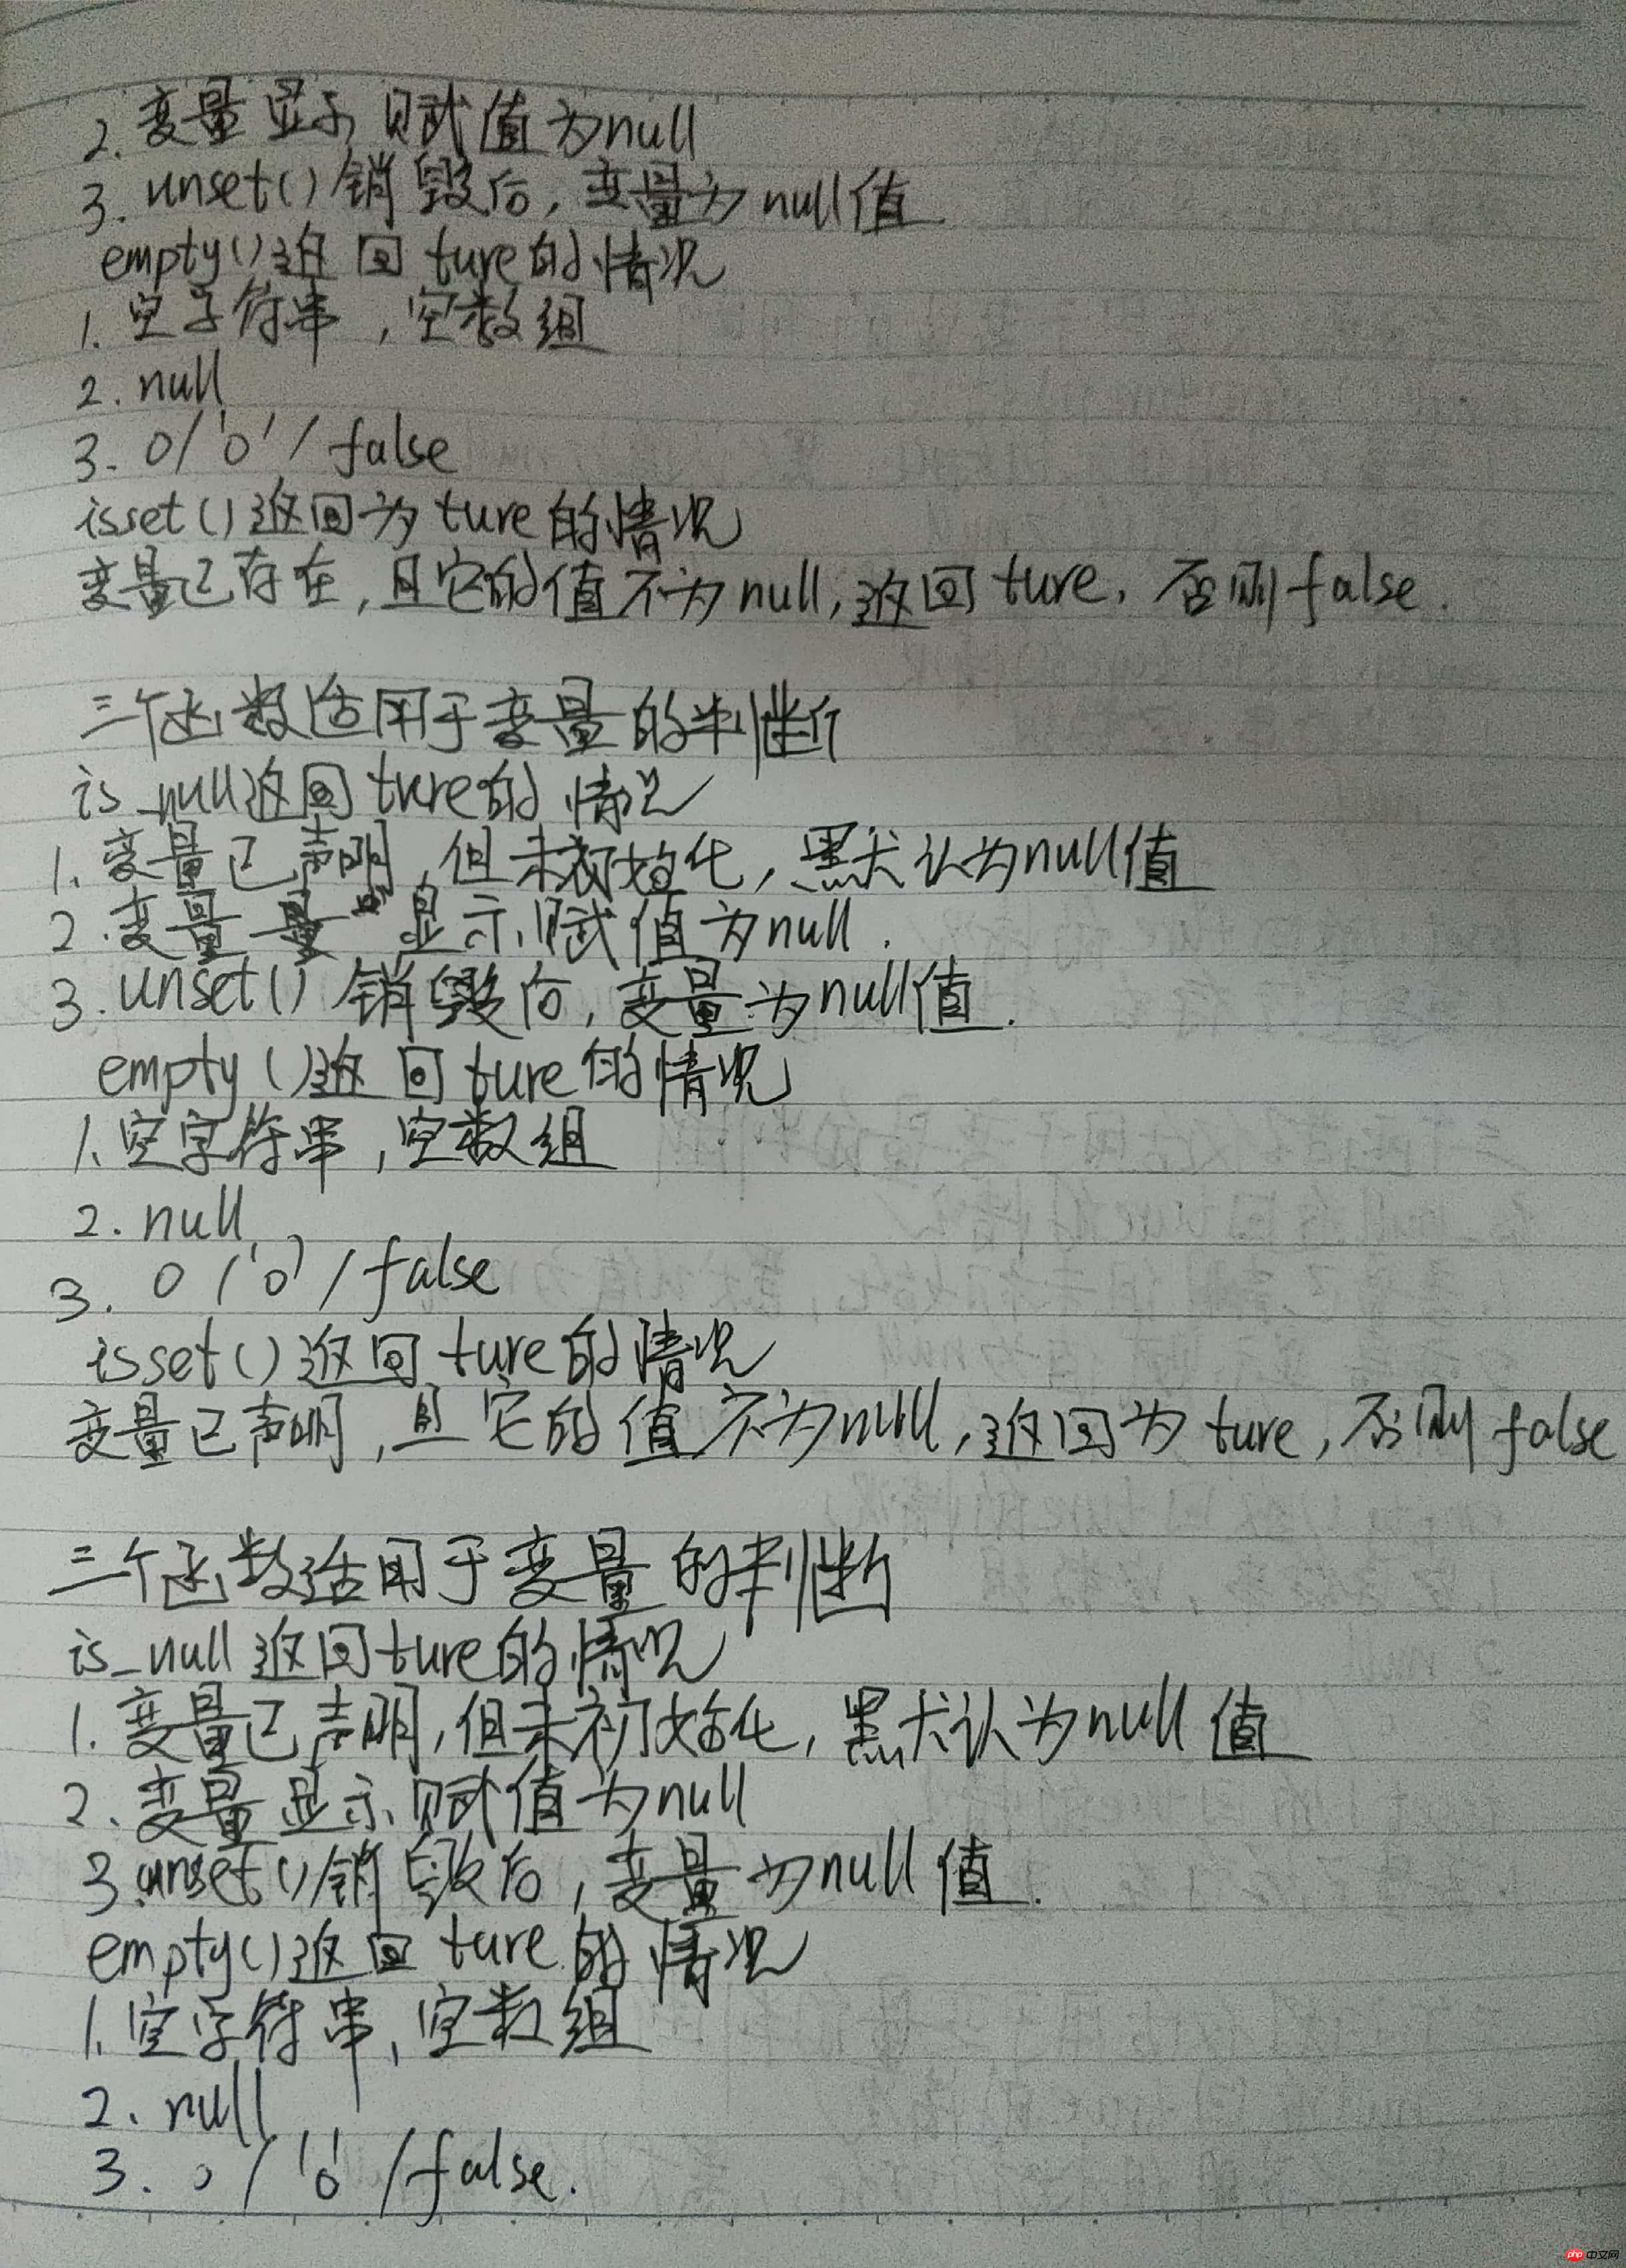 2. 变量显示赋值为null
3. unset()销毁后, 变量为null值
empty()返回ture的情况
1. 空字符串, 空数组
2. null
3. 0/'0'/false
isset()返回为ture的情况
变量已存在, 且它的值不为null, 返回ture, 否则false.
三个函数适用于变量的判断
is_null返回ture的情况
1. 变量已声明, 但未初始化, 默认为null值
2. 变量量 显示赋值为null.
3. unset()销毁后, 变量为null值.
empty()返回ture的情况
1、空字符串, 空数组
2. null
3. 0/'0'/false
isset()返回ture的情况
变量已声明, 且它的值不为null, 返回为ture, 否则false
三个函数适用于变量的判断
is_null返回ture的情况
1. 变量已声明, 但未初始化, 默认为null值
2、变量显示赋值为null
3. unset()销毁后, 变量为null值.
empty()返回ture的情况
1、空字符串, 空数组
2、null
3. 0/'0'/false.
php 中文网